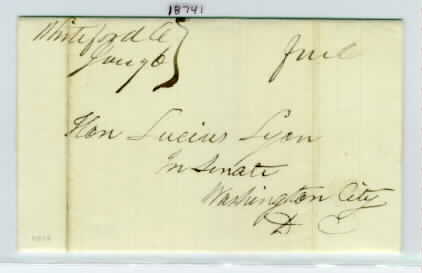 18741
Whiteford O
Jany 6
free
Hon Lucius Lyon
In Senate
Washington City
D C